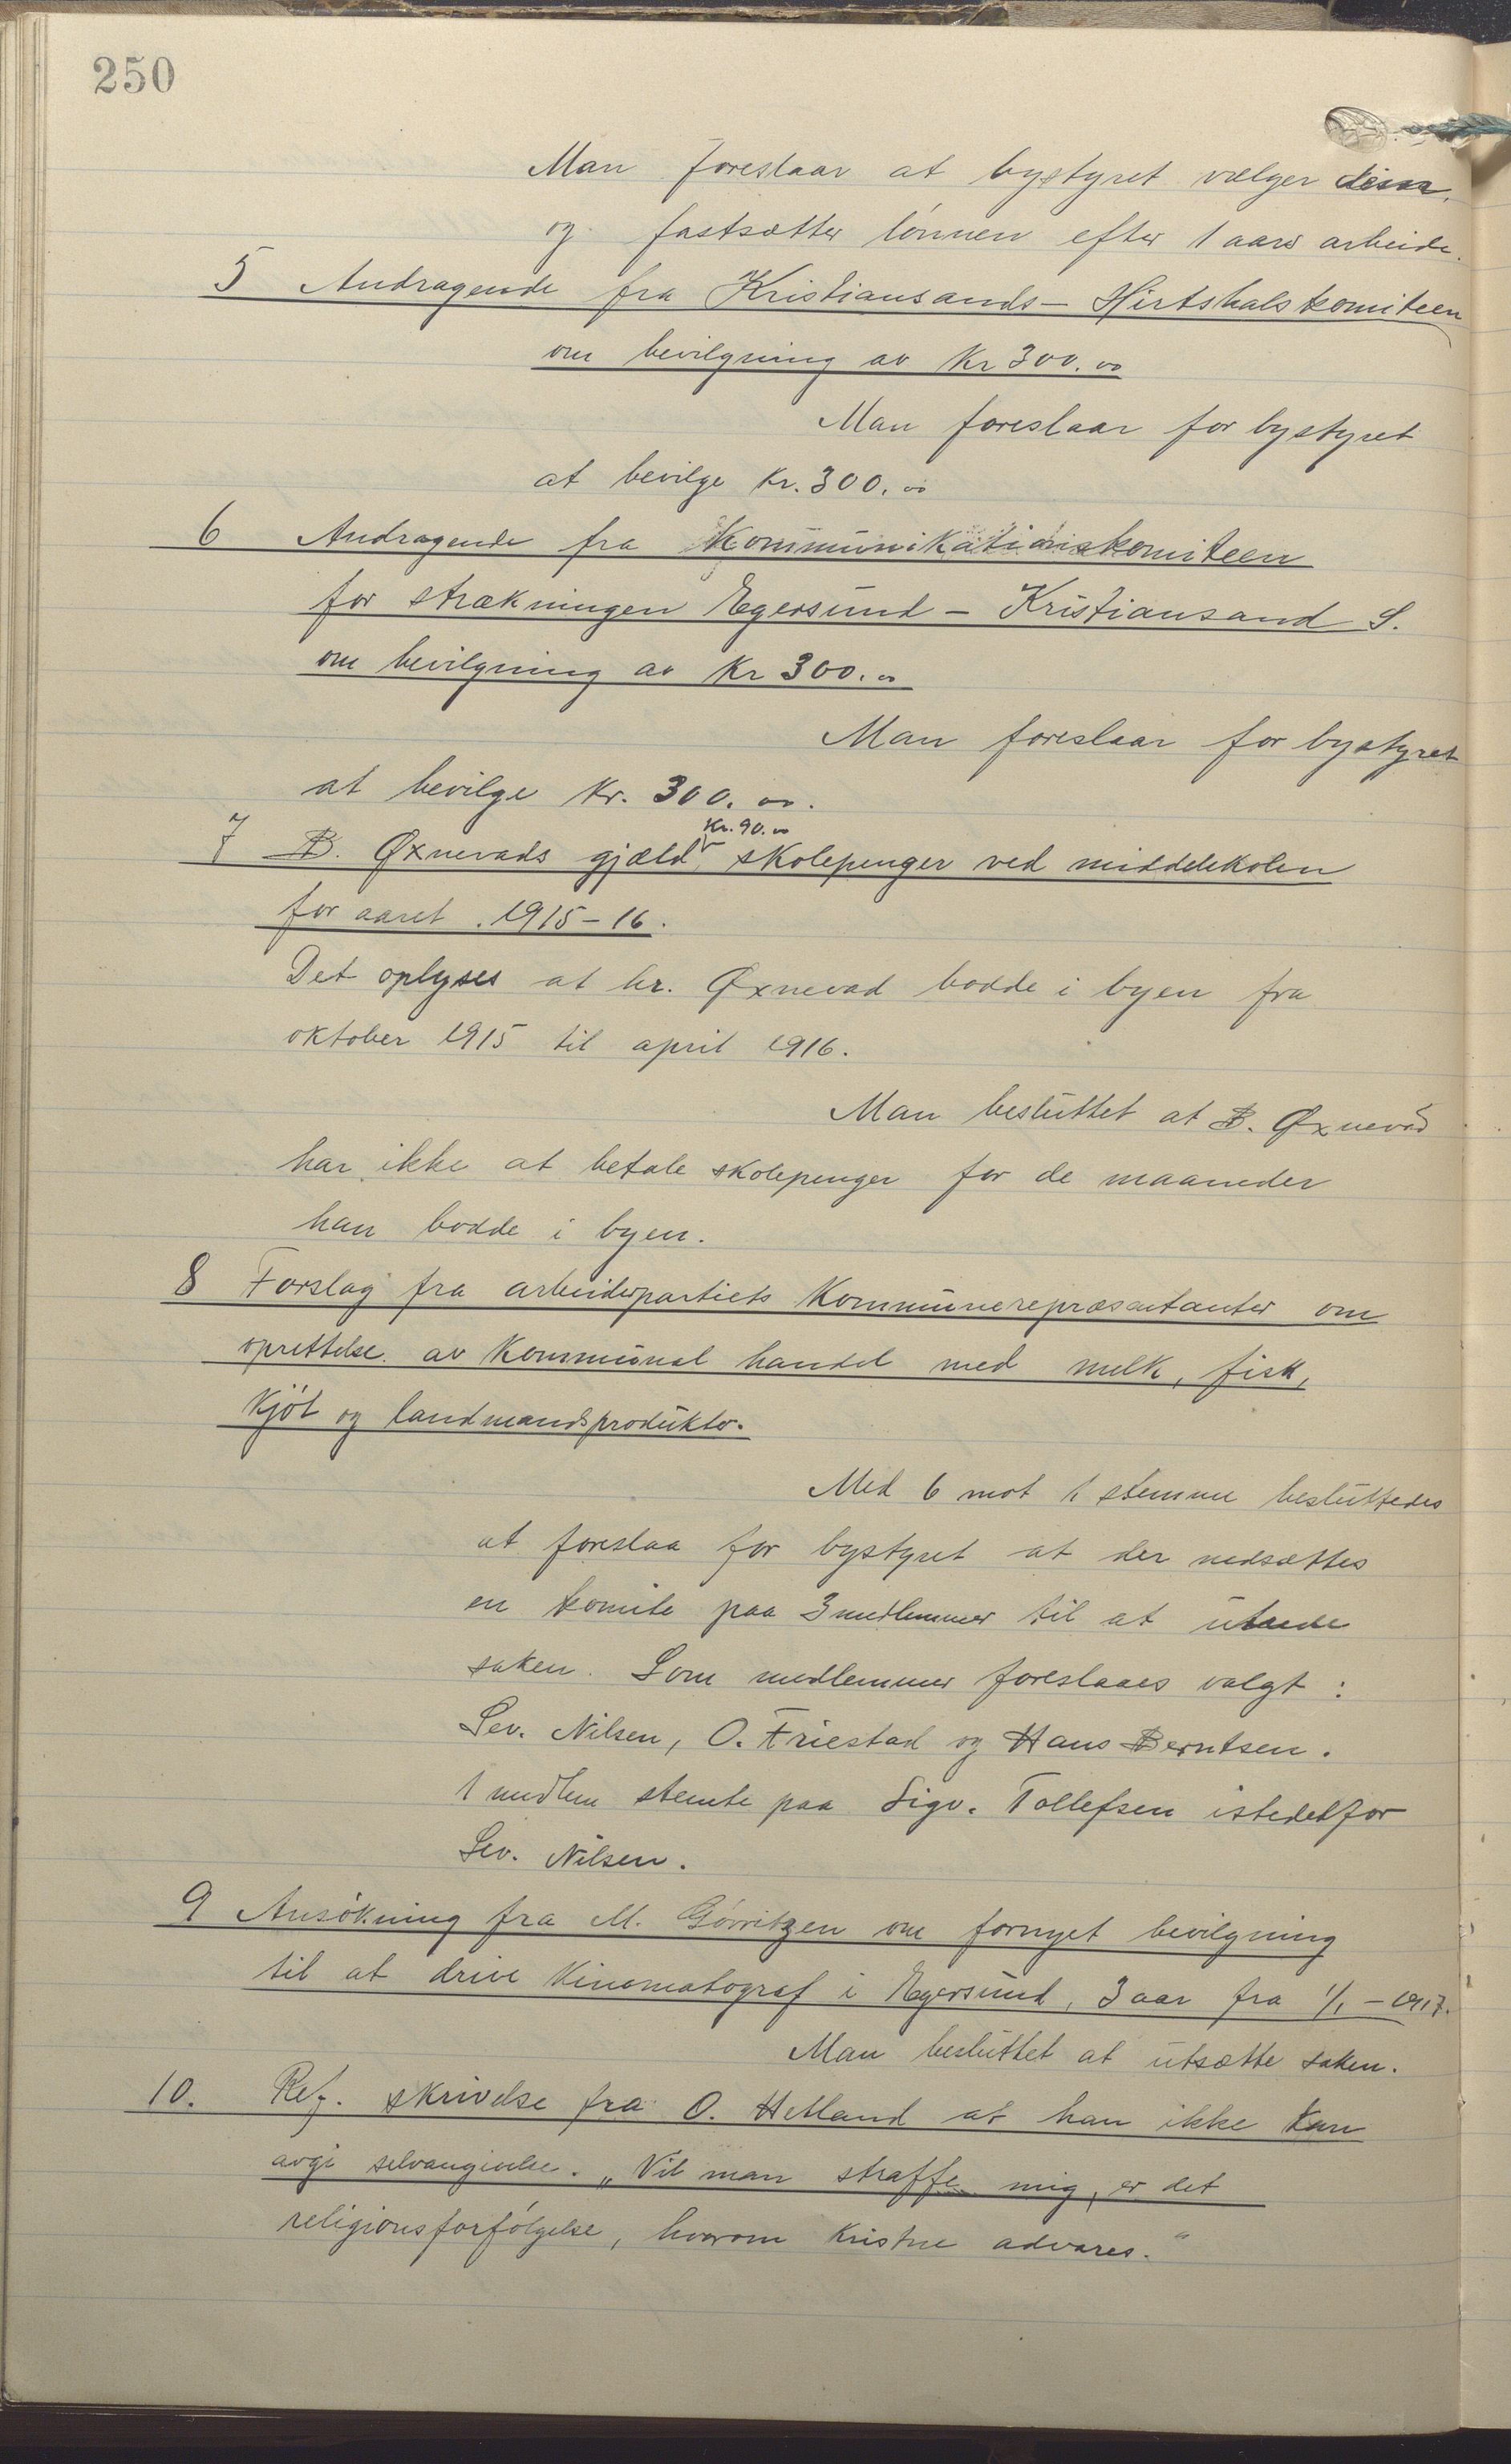 250
Man foreslaar at bystyret vælger disse,
og fastsætter lønnen efter 1 aars arbeide.
5 Andragende fra Kristiansands - Hirtshalskomiteen
om bevilgning av Kr 300.00
Man foreslaar for bystyret
at bevilge Kr. 300.00
6 Andragende fra Kommunikationskomiteen
for strækningen Egersund - Kristiansand S.
om bevilgning av Kr 300.00
Man foreslaar for bystyret
at bevilge Kr. 300.00.
Kr. 90.00
7 B. Øxnevads gjæld skolepenger ved middelskolen
for aaret 1915-16.
Det oplyses at hr. Øxnevad bodde i byen fra
oktober 1915 til april 1916.
Man besluttet at B. Øxnevad
har ikke at betale skolepenger for de maaneder
han bodde i byen.
8 Forslag fra arbeiderpartiets Kommunerepræsentanter om
oprettelse av Kommunal handel med melk, fisk,
Kjøt og landmandsprodukter.
Med 6 mot 1 stemme besluttedes
at foreslaa for bystyret at der nedsættes
en komite paa 3 medlemmer til at utrede
saken. Som medlemmer foreslaaes valgt:
Sev. Nilsen, O. Friestad og Hans Berntsen.
1 medlem stemte paa Sigv. Tollefsen istedetfor
Sev. Nilsen.
9 Ansøkning fra M. Gørritzen om fornyet bevilgning
til at drive Kinematograf i Egersund, 3 aar fra 1/1 - 1917.
Man besluttet at utsætte saken.
10. Ref. skrivelse fra O. Hetland at han ikke kan
avgi selvangivelse. „Vil man straffe mig, er det
religionsforfølgelse, hvorom Kristne advares.“